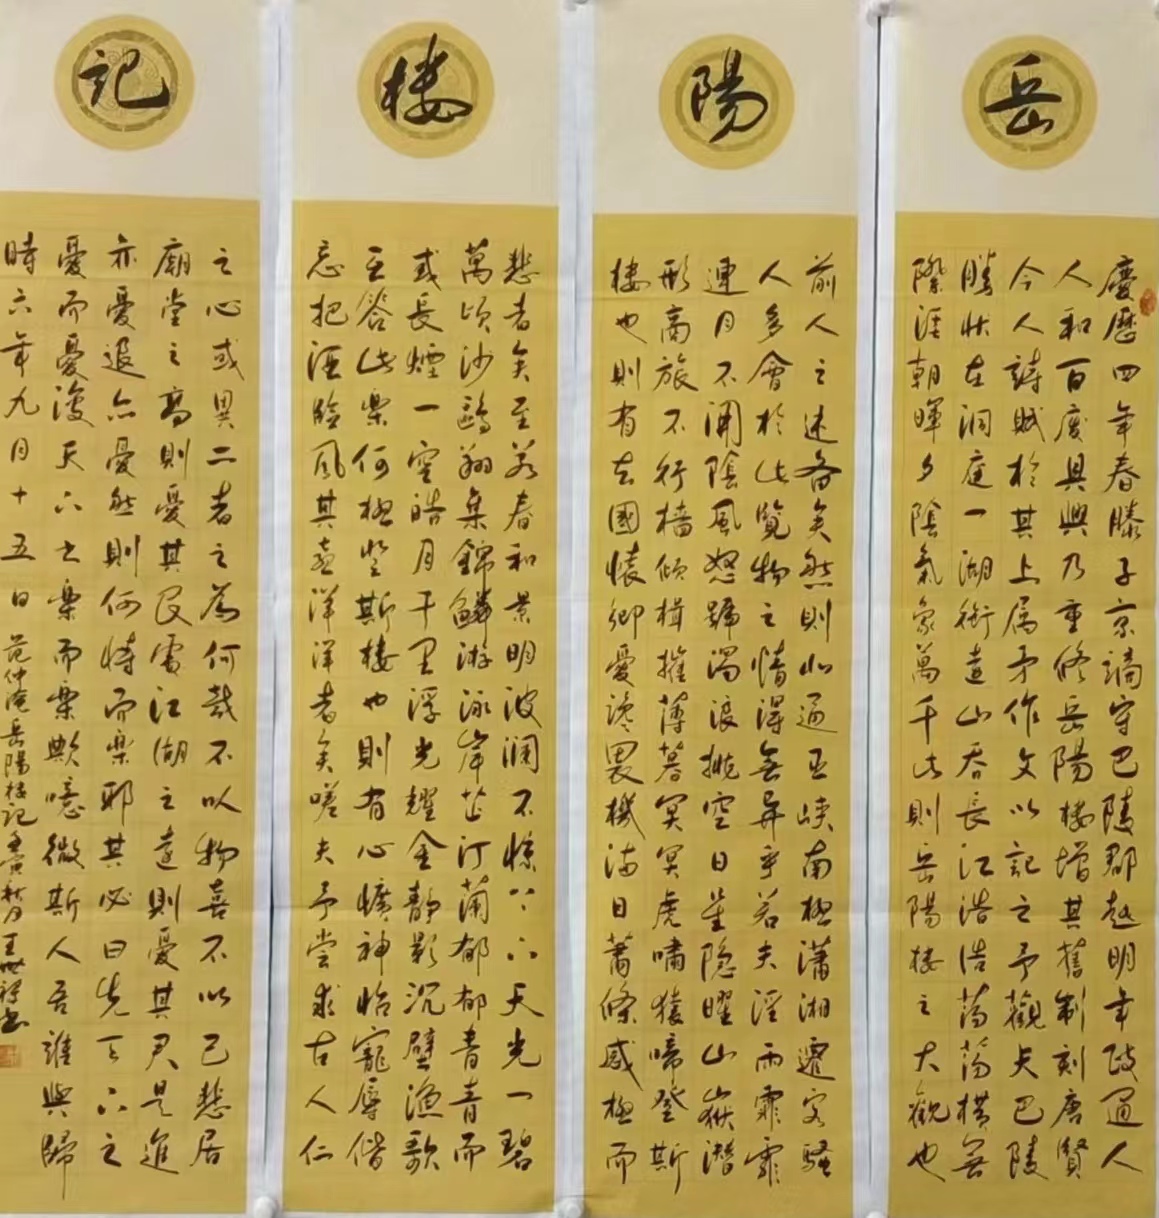 岳
慶曆四年春滕子京謫守巴陵郡越明年政通人
人和百廢具興乃重修岳陽楼增其舊制刻唐賢
今人詩賦於其上属予作文以記之予觀夫巴陵
勝狀在洞庭一湖銜遠山吞長江浩浩蕩蕩橫無
際涯朝暉夕陰氣象萬千此則岳陽楼之大觀也
陽
前人之述备矣然則北通巫峽南極瀟湘遷客騷
人多會於此覽物之情得無異乎若夫淫雨霏霏
連月不開陰風怒號濁浪排空日星隐曜山嶽潛
形商旅不行檣傾楫摧薄暮冥冥虎嘯猿啼登斯
楼也則有去國懷鄉憂讒畏機满目蕭條感極而
楼
悲者矣至若春和景明波瀾不惊上下天光一碧
萬頃沙鷗翔集錦鱗游泳岸芷汀蘭郁郁青青而
或長煙一空皓月千里浮光耀金静影沉壁漁歌
互答此樂何極登斯楼也則有心曠神怡寵辱偕
忘把酒臨風其喜洋洋者矣嗟夫予嘗求古人仁
記
之心或異二者之為何哉不以物喜不以己悲居
廟堂之高則憂其民處江湖之遠則憂其君是進
亦憂退亦憂然則何時而樂耶其必曰先天下之
憂而憂後天下之樂而樂歟噫微斯人吾誰與歸
時六年九月十五日 范仲淹岳陽楼記 壬寅秋月 王世書